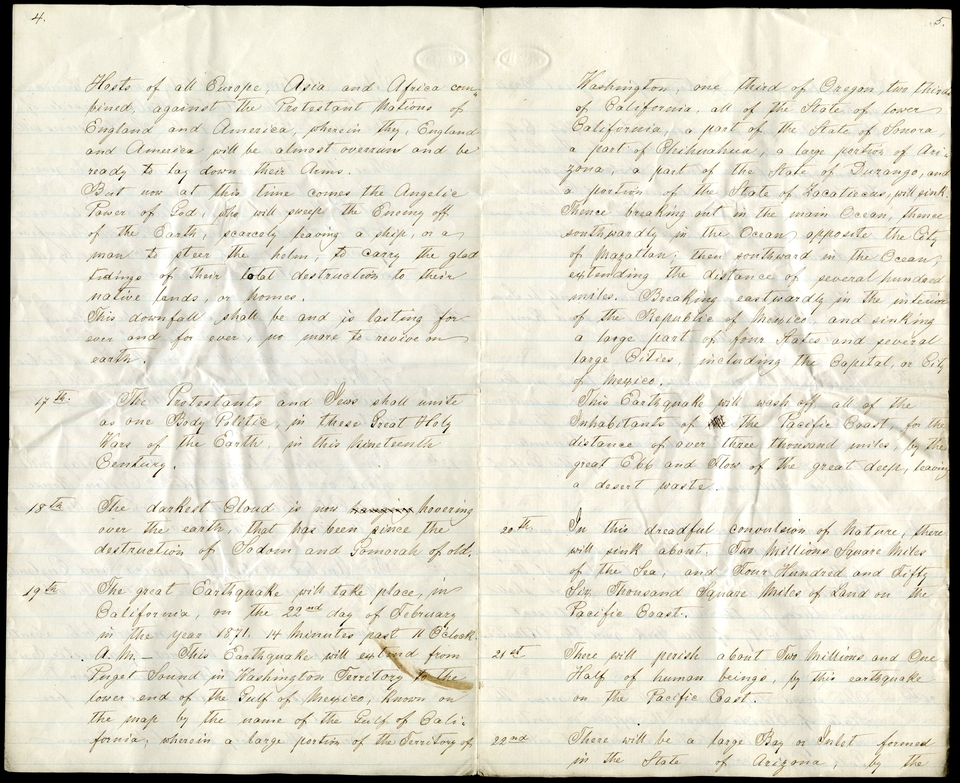 4.
Hosts of all Europe, Asia and Africa com-
bined, against the Protestant Nations of
England and America, wherein they, England
and America will be almost overrun and be
ready to lay down their Arms.
But now at this time comes the Angelic
Power of God, who will sweep the Enemy off
of the Earth, scarcely leaving a ship, or a
man to steer the helm, to carry the glad
tidings of their total destruction to their
native lands, or homes.
This downfall shall be and is lasting for
ever and for ever, no more to revive on
earth.
17th. The Protestants and Jews shall unite
as one Body Politic, in these Great Holy
Wars of the Earth, in this Nineteenth
Century.
18th The darkest Cloud is now hovering
over the earth, that has been since the
destruction of Sodom and Gomorah of old.
19th The great Earthquake will take place, in
California, on the 22nd day of February
in the year 1871. 14 Minutes past 11 O'Clock.
A.M. — This Earthquake will extend from
Puget Sound in Washington Territory to the
lower end of the Gulf of Mexico, known on
the map by the name of the Gulf of Cali-
fornia, wherein a large portion of the Territory of
5.
Washington, one third of Oregon, two thirds
of California, all of the State of lower
California, a part of the State of Sonora,
a part of Chihuahua, a large portion of Ari-
zona, a part of the State of Durango, and
a portion of the State of Zacatecas, will sink.
Thence breaking out in the main Ocean, thence
southwardly in the Ocean opposite the City
of Mazatlan; then southward in the Ocean,
extending the distance of several hundred
miles. Breaking eastwardly in the interior
of the Republic of Mexico, and sinking
a large part of four States and several
large Cities, including the Capital, or City
of Mexico.
This Earthquake will wash off all of the
Inhabitants of the Pacific Coast, for the
distance of over three thousand miles, by the
great Ebb and Flow of the great deep, leaving
a desert waste.
20th. In this dreadful convulsion of Nature, there
will sink about. Two Millions Square Miles
of the Sea, and Four Hundred and Fifty
Six Thousand Square Miles of Land on the
Pacific Coast.
21st. There will perish about Two Millions and One
Half of human beings, by this earthquake
on the Pacific Coast.
22nd There will be a large Bay or Inlet formed
in the State of Arizona, by the